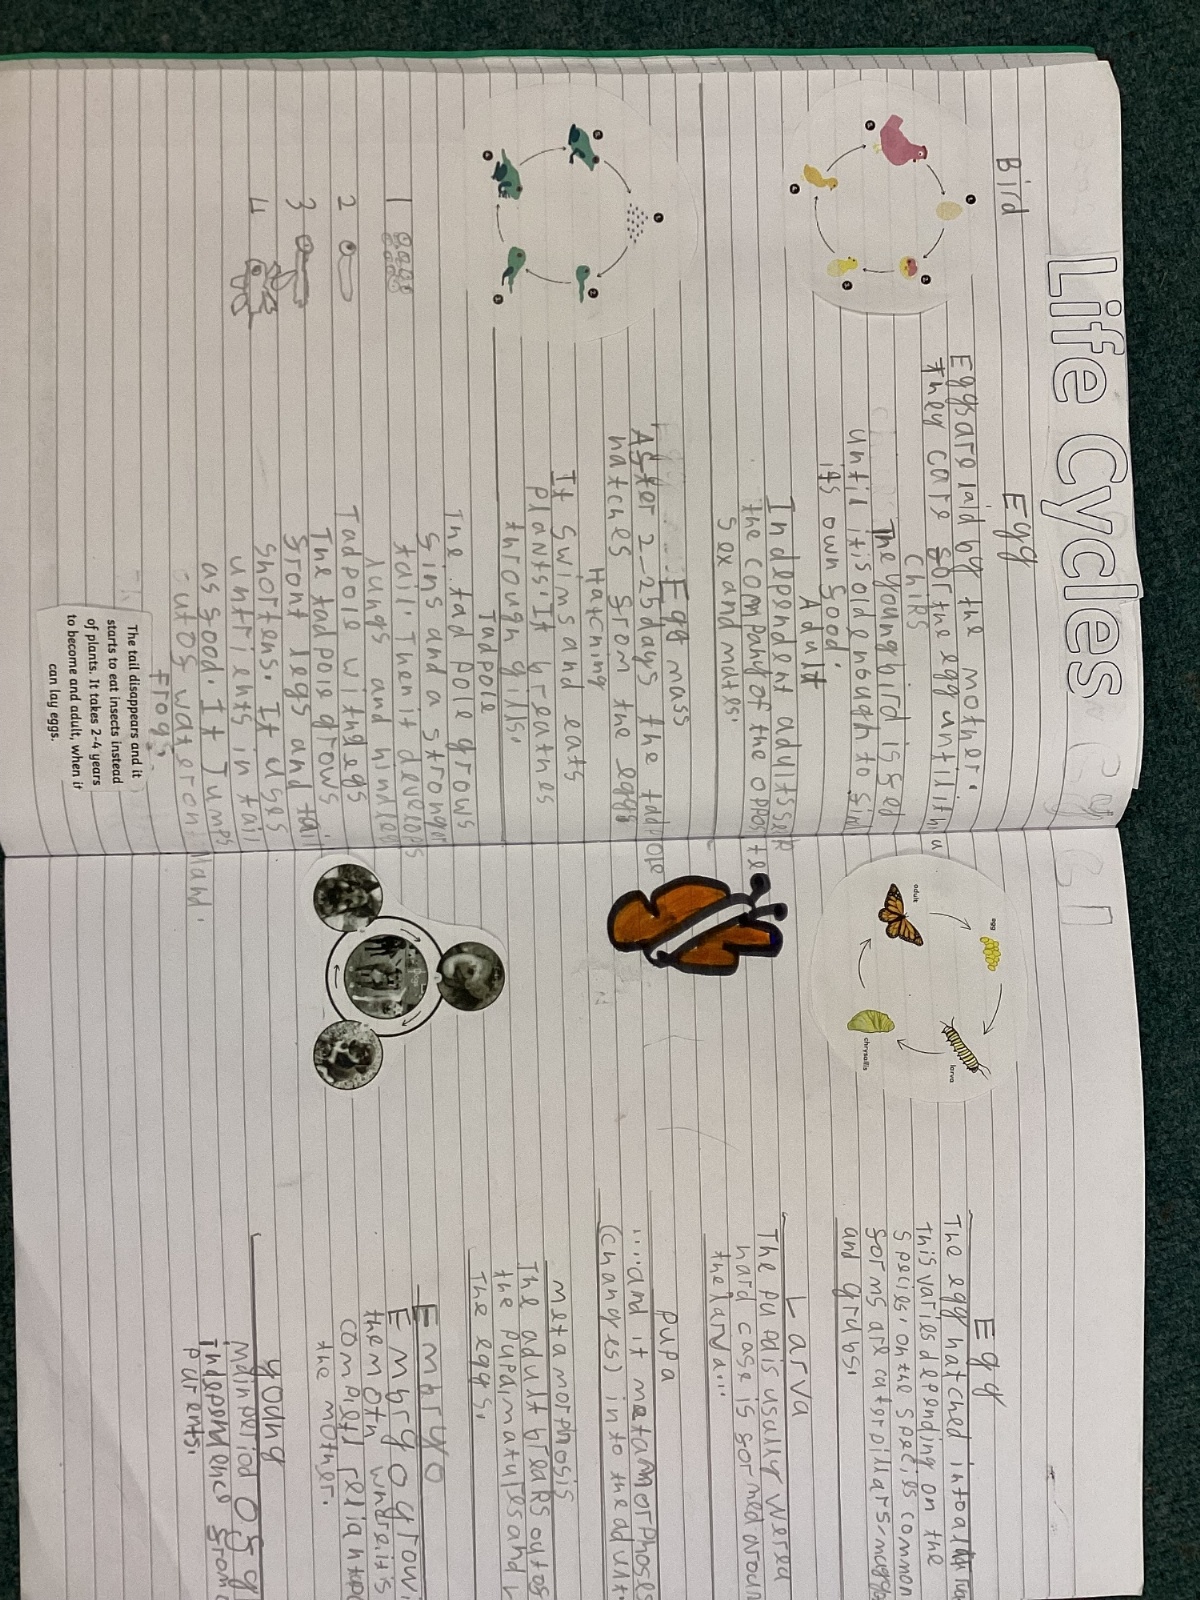 Life Cycles
Bird
Egg
Eggs are laid by the mother.
they care for the egg until
The young bird is fed
until it is old enough to
its own food.
Adult
Independent adult
the company of the
sex and mates.
Egg mass
After 2-25 days the
hatches from the eggs
Hatching
It swims and eats
plants. It breathes
through gills.
Tadpole
The tadpole grows
fins and a stronger
tail. Then it develops
lungs and hind
Tadpole with
The tadpole grows
front legs and tail
shortens. It uses
untrients in tail
as food. It Jumps
water on land.
Frog
1
2
3
4
The tail disappears and it
starts to eat insects instead
of plants. It takes 2-4 years
to become and adult, when it
can lay eggs.
egg
larva
chrysallis
adult
Egg
The egg hatched into a
This varies depending on the
species. on the species common
forms are
and grubs.
Larva
The is usually
hard case is formed
the larva...
Pupa
....and it metamorphoses
(changes) into the adult
metamorphosis
The adult breaks out of
the pupa. matures and
The eggs.
Embryo
Embryo grow
the moth
the mother.
young
period of
from
Parents.